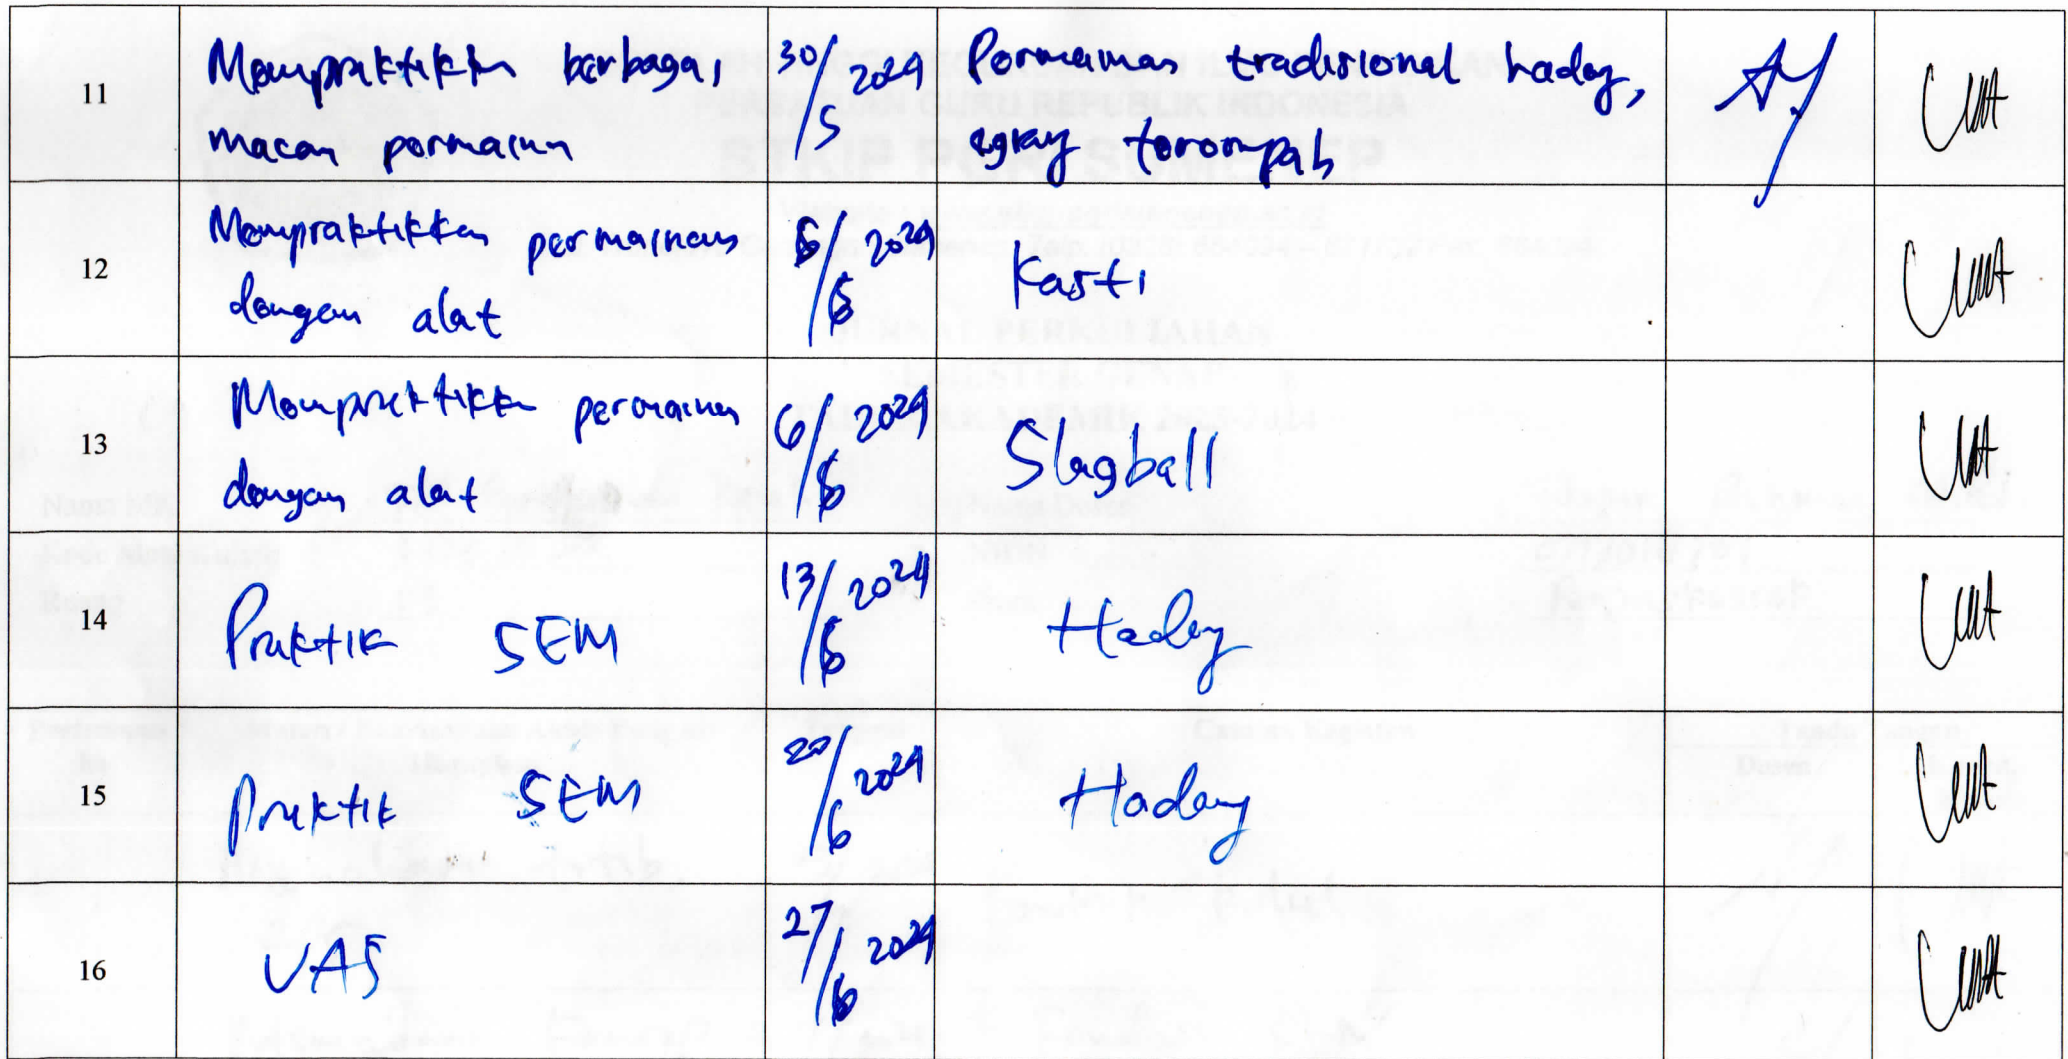 11
Mempraktikkn berbagai
macam permainan
30/5 2024
Permainan tradisional hadang,
egrang terompah
12
Mempraktikkan permainan
dengan alat
6/6 2024
Kasti
13
Mempraktikkn permainan
dengan alat
6/6 2024
Slagball
14
Praktik SEM
13/6 2024
Hadang
15
Praktik SEM
20/6 2024
Hadang
16
UAS
27/6 2024